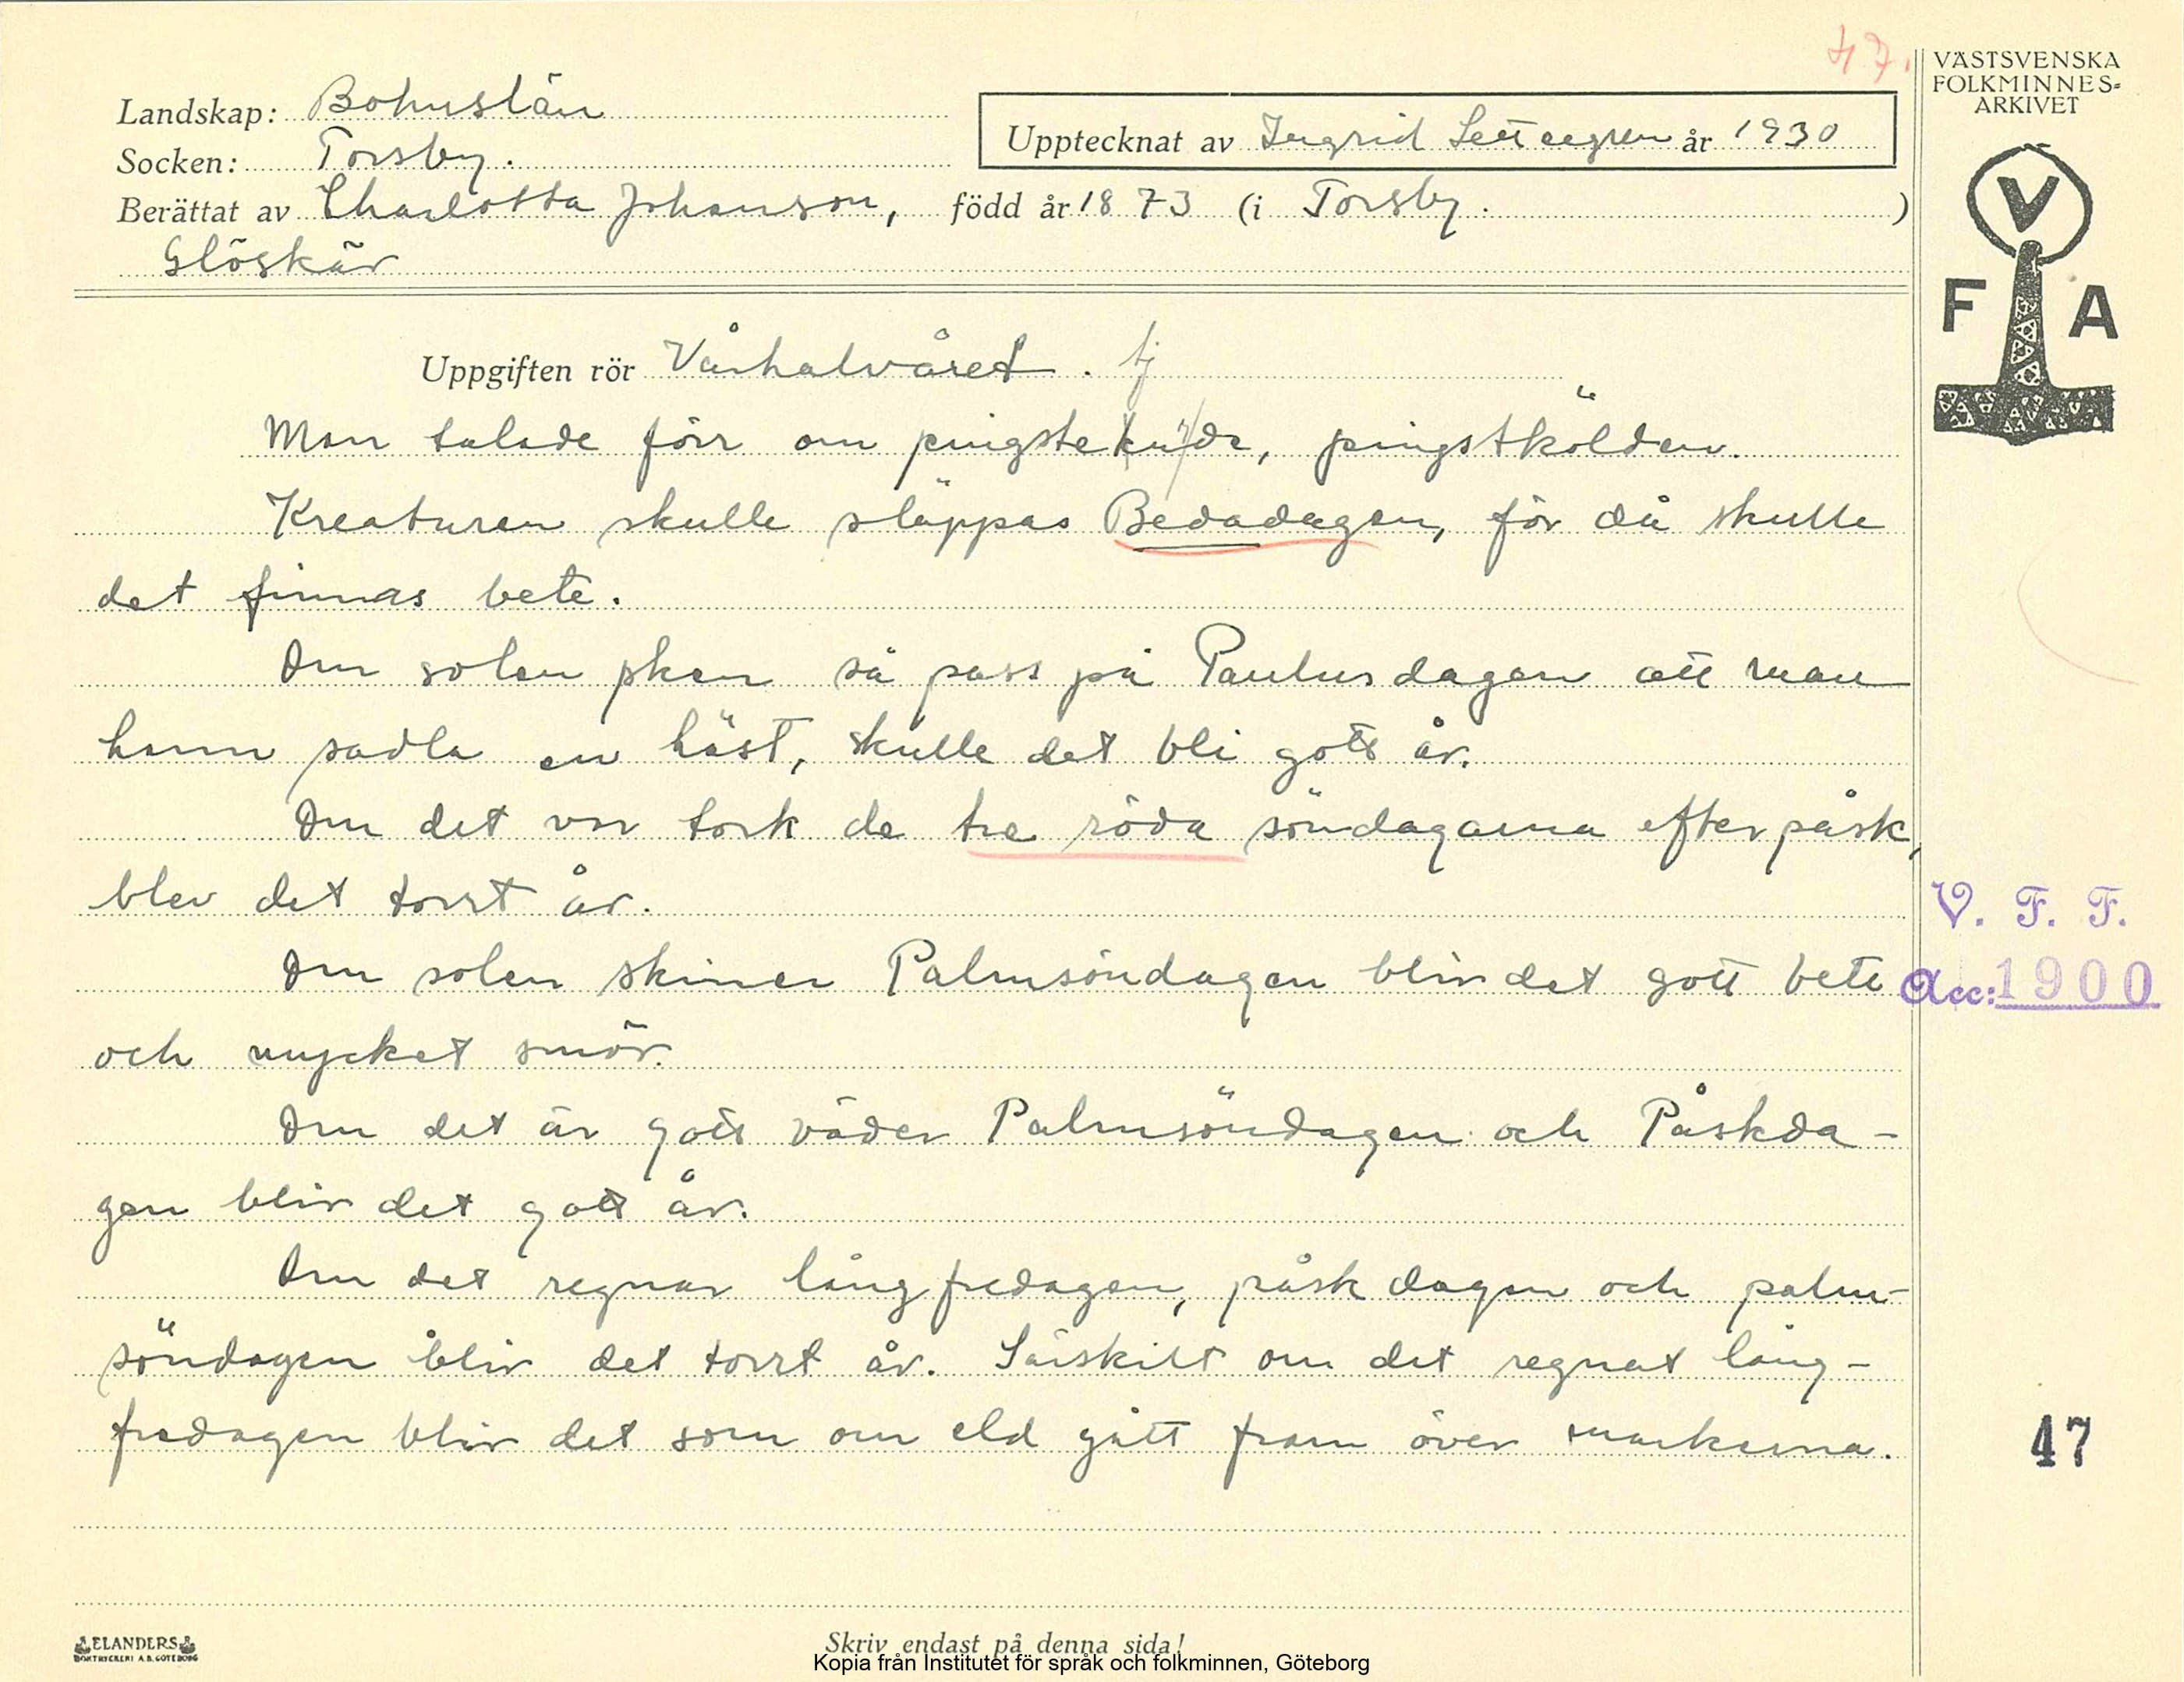 47.
VÄSTSVENSKA
FOLKMINNES-
ARKIVET
Landskap: Bohuslän
Socken: Torsby.
Upptecknat av Ingrid år 1930
Berättat av Charlotta Johanson, född år 1873 (i Torsby. )
Glöskär
V
F A
Uppgiften rör Vårhalvåret.
Man talade förr om, pingstkölden.
Kreaturen skulle släppas Bedadagen, för då skulle
det finnas bete.
Om solen sken så pass på Paulusdagen att man
hann sadla en häst, skulle det bli gott år.
Om det var tork de tre röda söndagarna efter påsk,
blev det torrt år.
Om solen skiner Palmsöndagen blir det gott bete
och mycket smör.
Om det är gott väder Palmsöndagen och Påskda-
gen blir det gott år.
Om det regnar långfredagen, påskdagen och palm-
söndagen blir det torrt år. Särskilt om det regnat lång-
fredagen blir det som om eld gått fram över markerna.
V. F. F.
Acc: 1900
47
ELANDERS
BOKTRYCKERI A.B. GÖTEBORG
Skriv endast på denna sida!
Kopia från Institutet för språk och folkminnen, Göteborg